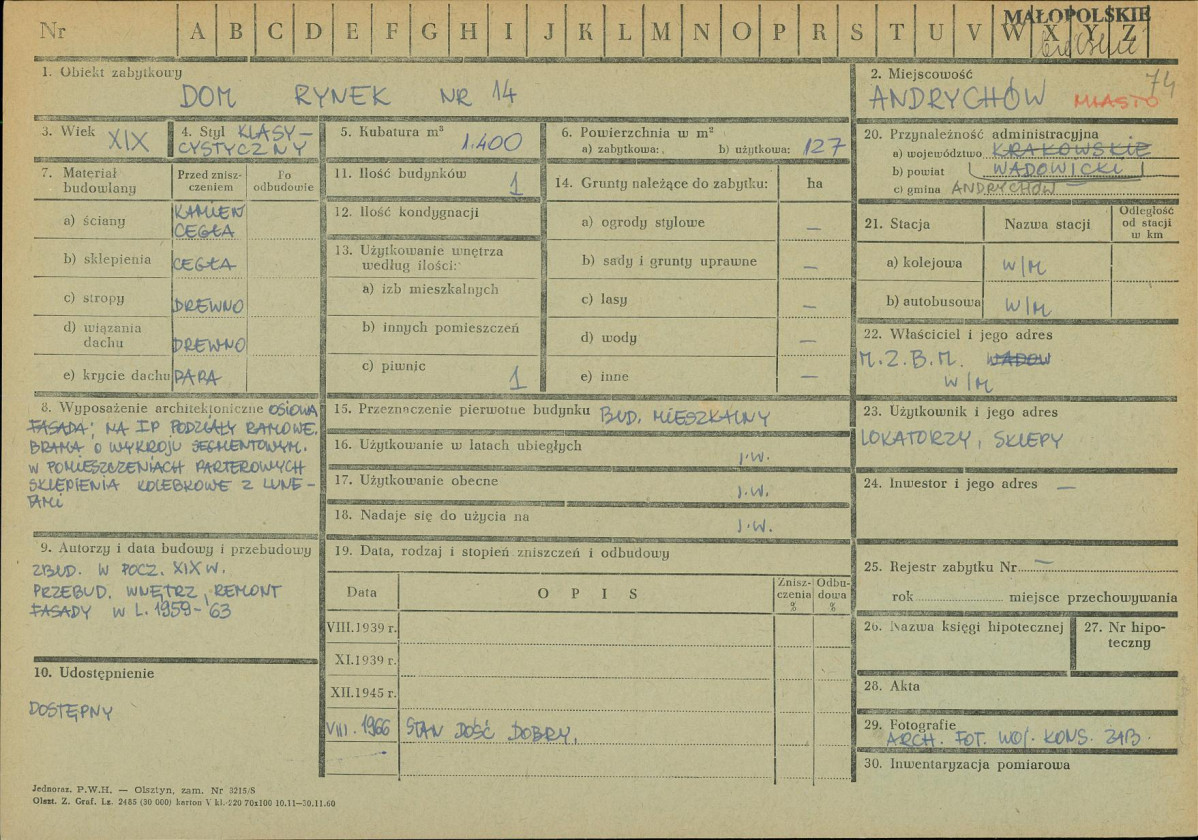 Nr A B C D E F G H I J K L M N O P R S T U V W X Y Z
MAŁOPOLSKIE
1. Obiekt zabytkowy
DOM RYNEK NR 14
2. Miejscowość
74
ANDRYCHÓW MIASTO
3. Wiek XIX
4. Styl KLASY-
CYSTYCZNY
5. Kubatura m³
1.400
6. Powierzchnia w m²
a) zabytkowa: b) użytkowa: 127
20. Przynależność administracyjna
a) województwo KRAKOWSKIE
b) powiat WADOWICKI
c) gmina ANDRYCHÓW
7. Materiał
budowlany
Przed znisz-
czeniem
Po
odbudowie
a) ściany KAMIEŃ
CEGŁA
b) sklepienia CEGŁA
c) stropy DREWNO
d) wiązania
dachu DREWNO
e) krycie dachu PAPA
11. Ilość budynków 1
12. Ilość kondygnacji
13. Użytkowanie wnętrza
według ilości:
a) izb mieszkalnych
b) innych pomieszczeń
c) piwnic 1
14. Grunty należące do zabytku: ha
a) ogrody stylowe —
b) sady i grunty uprawne —
c) lasy —
d) wody —
e) inne —
21. Stacja Nazwa stacji
Odległość
od stacji
w km
a) kolejowa W/M
b) autobusowa W/M
22. Właściciel i jego adres
M.Z.B.M. WADOW
W/M
8. Wyposażenie architektoniczne OSIOWA
FASADA; NA IP PODZIAŁY RAMOWE.
BRAMA O WYKROJU SEGMENTOWYM.
W POMIESZCZENIACH PARTEROWYCH
SKLEPIENIA KOLEBKOWE Z LUNE-
TAMI
15. Przeznaczenie pierwotne budynku BUD. MIESZKALNY
16. Użytkowanie w latach ubiegłych J.W.
17. Użytkowanie obecne J.W.
18. Nadaje się do użycia na J.W.
23. Użytkownik i jego adres
LOKATORZY, SKLEPY
24. Inwestor i jego adres —
9. Autorzy i data budowy i przebudowy
ZBUD. W POCZ. XIX W.
PRZEBUD. WNĘTRZ, REMONT
FASADY W L. 1959-'63
19. Data, rodzaj i stopień zniszczeń i odbudowy
Data OPIS
Znisz-
czenia
%
Odbu-
dowa
%
VIII.1939 r.
XI.1939 r.
XII.1945 r.
VIII.1966 STAN DOŚĆ DOBRY.
25. Rejestr zabytku Nr —
rok miejsce przechowywania
26. Nazwa księgi hipotecznej
27. Nr hipo-
teczny
10. Udostępnienie
DOSTĘPNY
28. Akta
29. Fotografie
ARCH. FOT. WOJ. KONS. ZAB.
30. Inwentaryzacja pomiarowa
Jednoraz. P.W.H. — Olsztyn, zam. Nr 3215/S
Olszt. Z. Graf. Lz. 2485 (30 000) karton V kl. 220 70x100 10.11—30.11.60